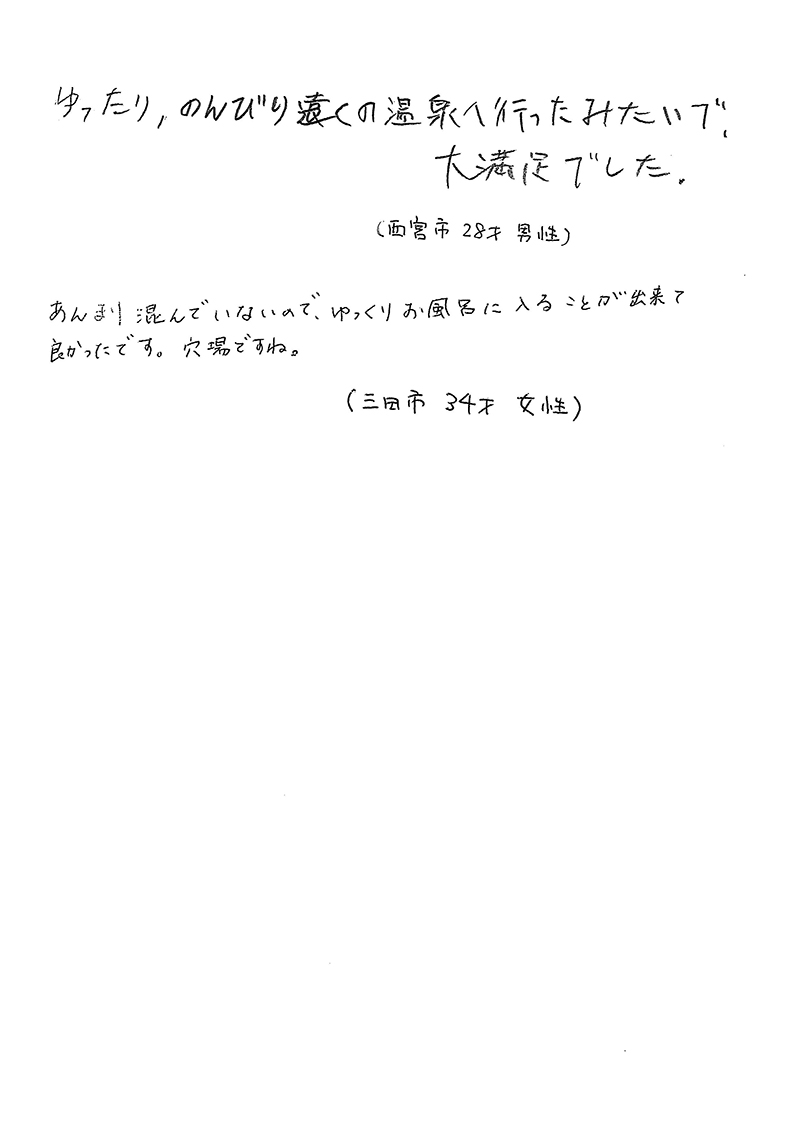 ゆったり,のんびり遠くの温泉へ行ったみたいで、
大満足でした.
(西宮市 28才 男性)
あんまり混んでいないので、ゆっくりお風呂に入ることが出来て
良かったです。穴場ですね。
(三田市 34才 女性)